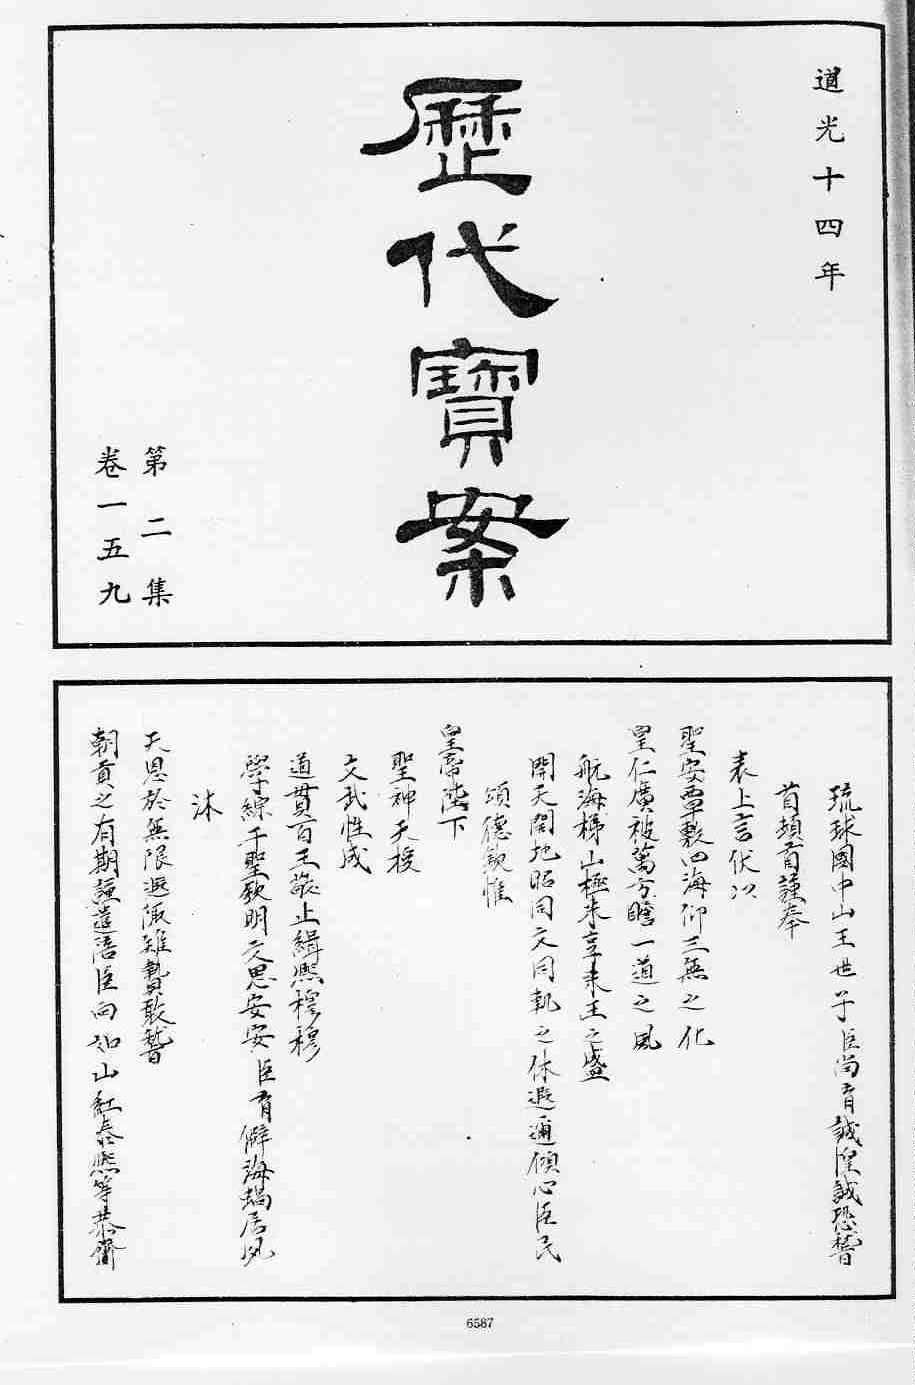 道光十四年
歷代寳案
第二集
卷一五九
琉球國中山王世子臣尚育誠惶誠恐稽
首頓首謹奉
表上言伏以
聖安覃敷四海仰三無之化
皇仁廣被萬方瞻一道之風
航海梯山極來享來王之盛
開天闢地昭同文同軌之休遐邇傾心臣民
頌德欽惟
皇帝陛下
聖神天授
文武性成
道貫百王敬止緝熙穆穆
學綜千聖欽明文思安安臣育僻海蝸居夙
沐
天恩於無限遐陬雉贄敢稽
朝貢之有期謹遣陪臣向如山紅泰熙等恭齎
6587